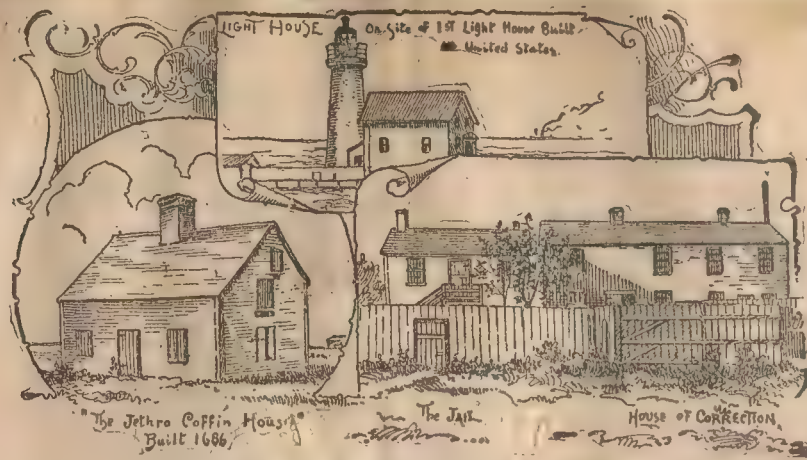 LIGHT HOUSE
On Site of 1ST Light House Built
United States.
"The Jethro Coffin House"
Built 1686
The JAIL
HOUSE OF CORRECTION.